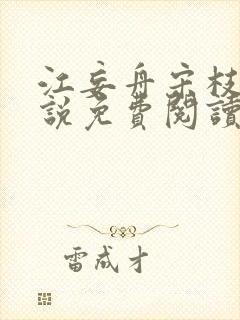 江妄舟宋枝
說免費閱讀
雷成才